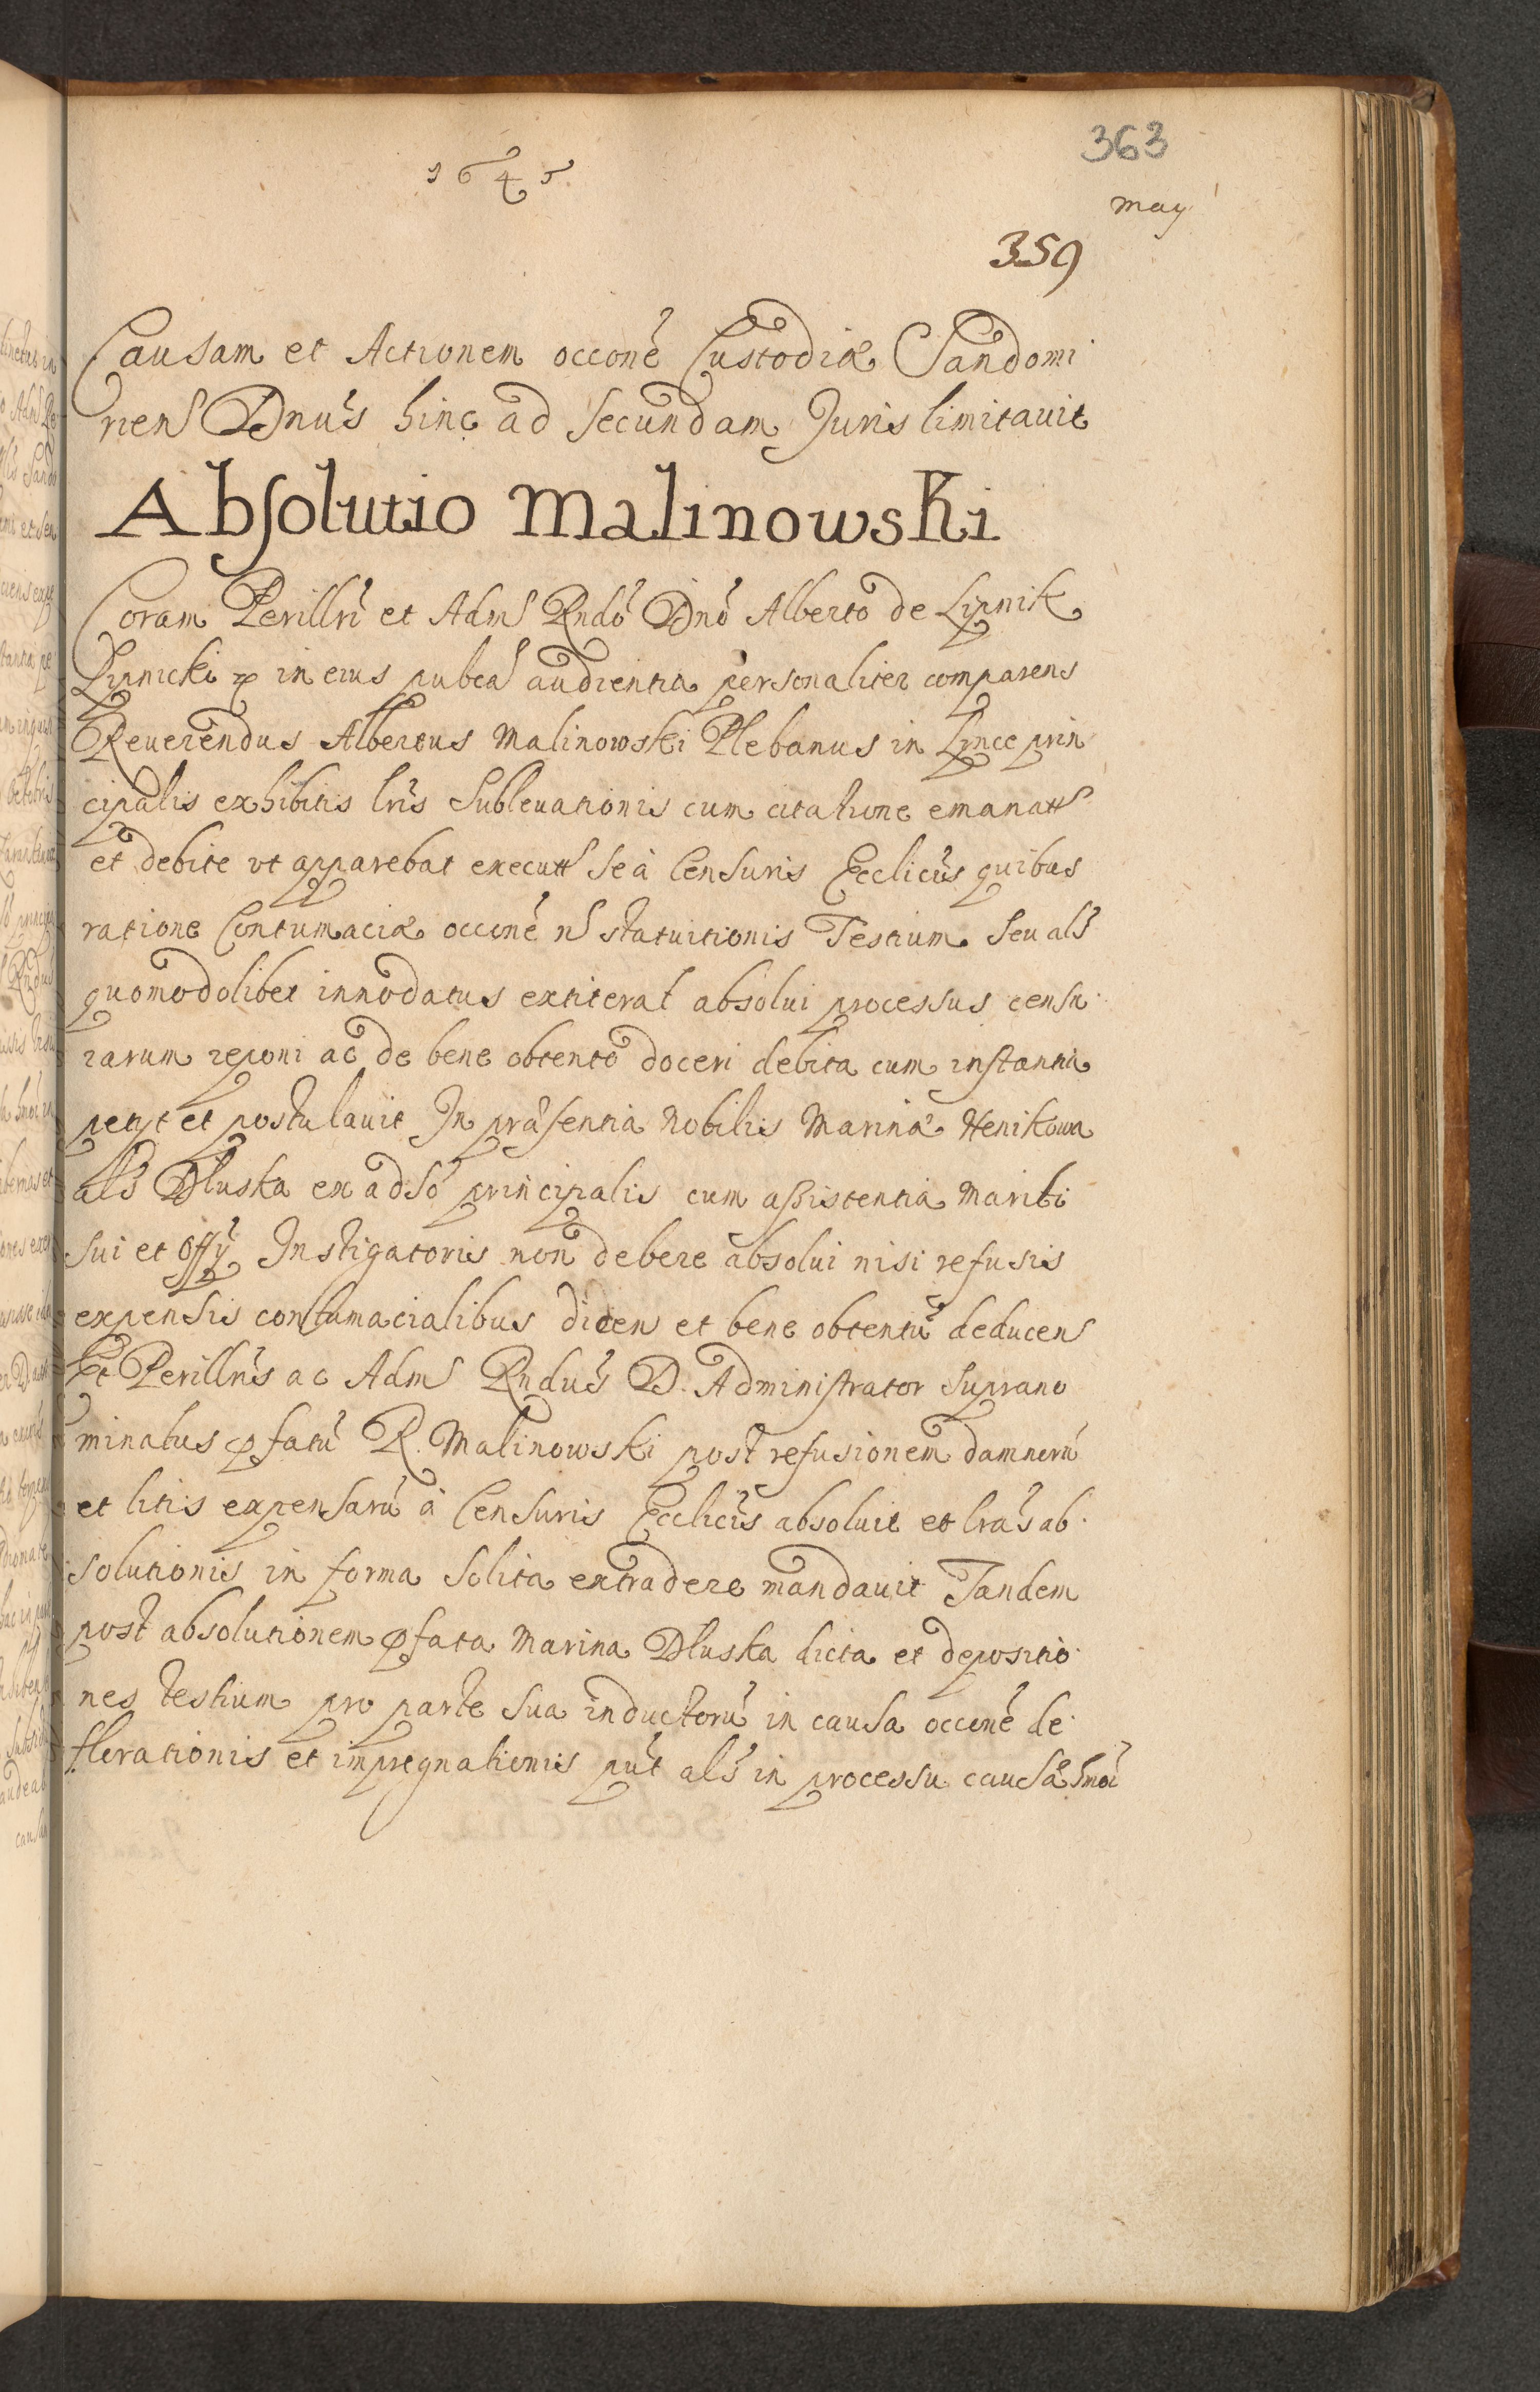 363
1645
may
359
Causam et Actionem occone Custodiæ Sandomi
rien Dnus hinc ad secundam Juris limitauit
Absolutio Malinowski
Coram Perillri et Adm Rndo Dno Alberto de Lipnik
Lipnicki in eius pubca audientia personaliter comparens
Reuerendus Albertus Malinowski Plebanus in Lince prin
cipalis exhibitis lris Subleuationis cum citatione emanatt
et debite vt apparebat executt se à Censuris Ecclicis quibus
ratione Contumaciæ occone n statuitionis Testium seu als
quomodolibet innodatus extiterat absolui processus censu
rarum reponi ac de bene obtento doceri debita cum instantia
petyt et postulauit In præsentia Nobilis Marinæ Henikowa
als Dluska ex adso principalis cum assistentia mariti
sui et Offy Instigatoris non debere absolui nisi refusis
expensis contumacialibus dicen et bene obtentu deducen
Et Perillris ac Adm Rndus D. Administrator Suprano
minatus pfatu R. Malinowski post refusionem damnoru
et litis expensaru à Censuris Ecclicis absoluit et lras ab
solutionis in forma solita extradere mandauit Tandem
post absolutionem pfata Marina Dluska dicta et depositio
nes testium pro parte sua inductoru in causa occone de
florationis et impregnationis put als in processu causæ hmoi